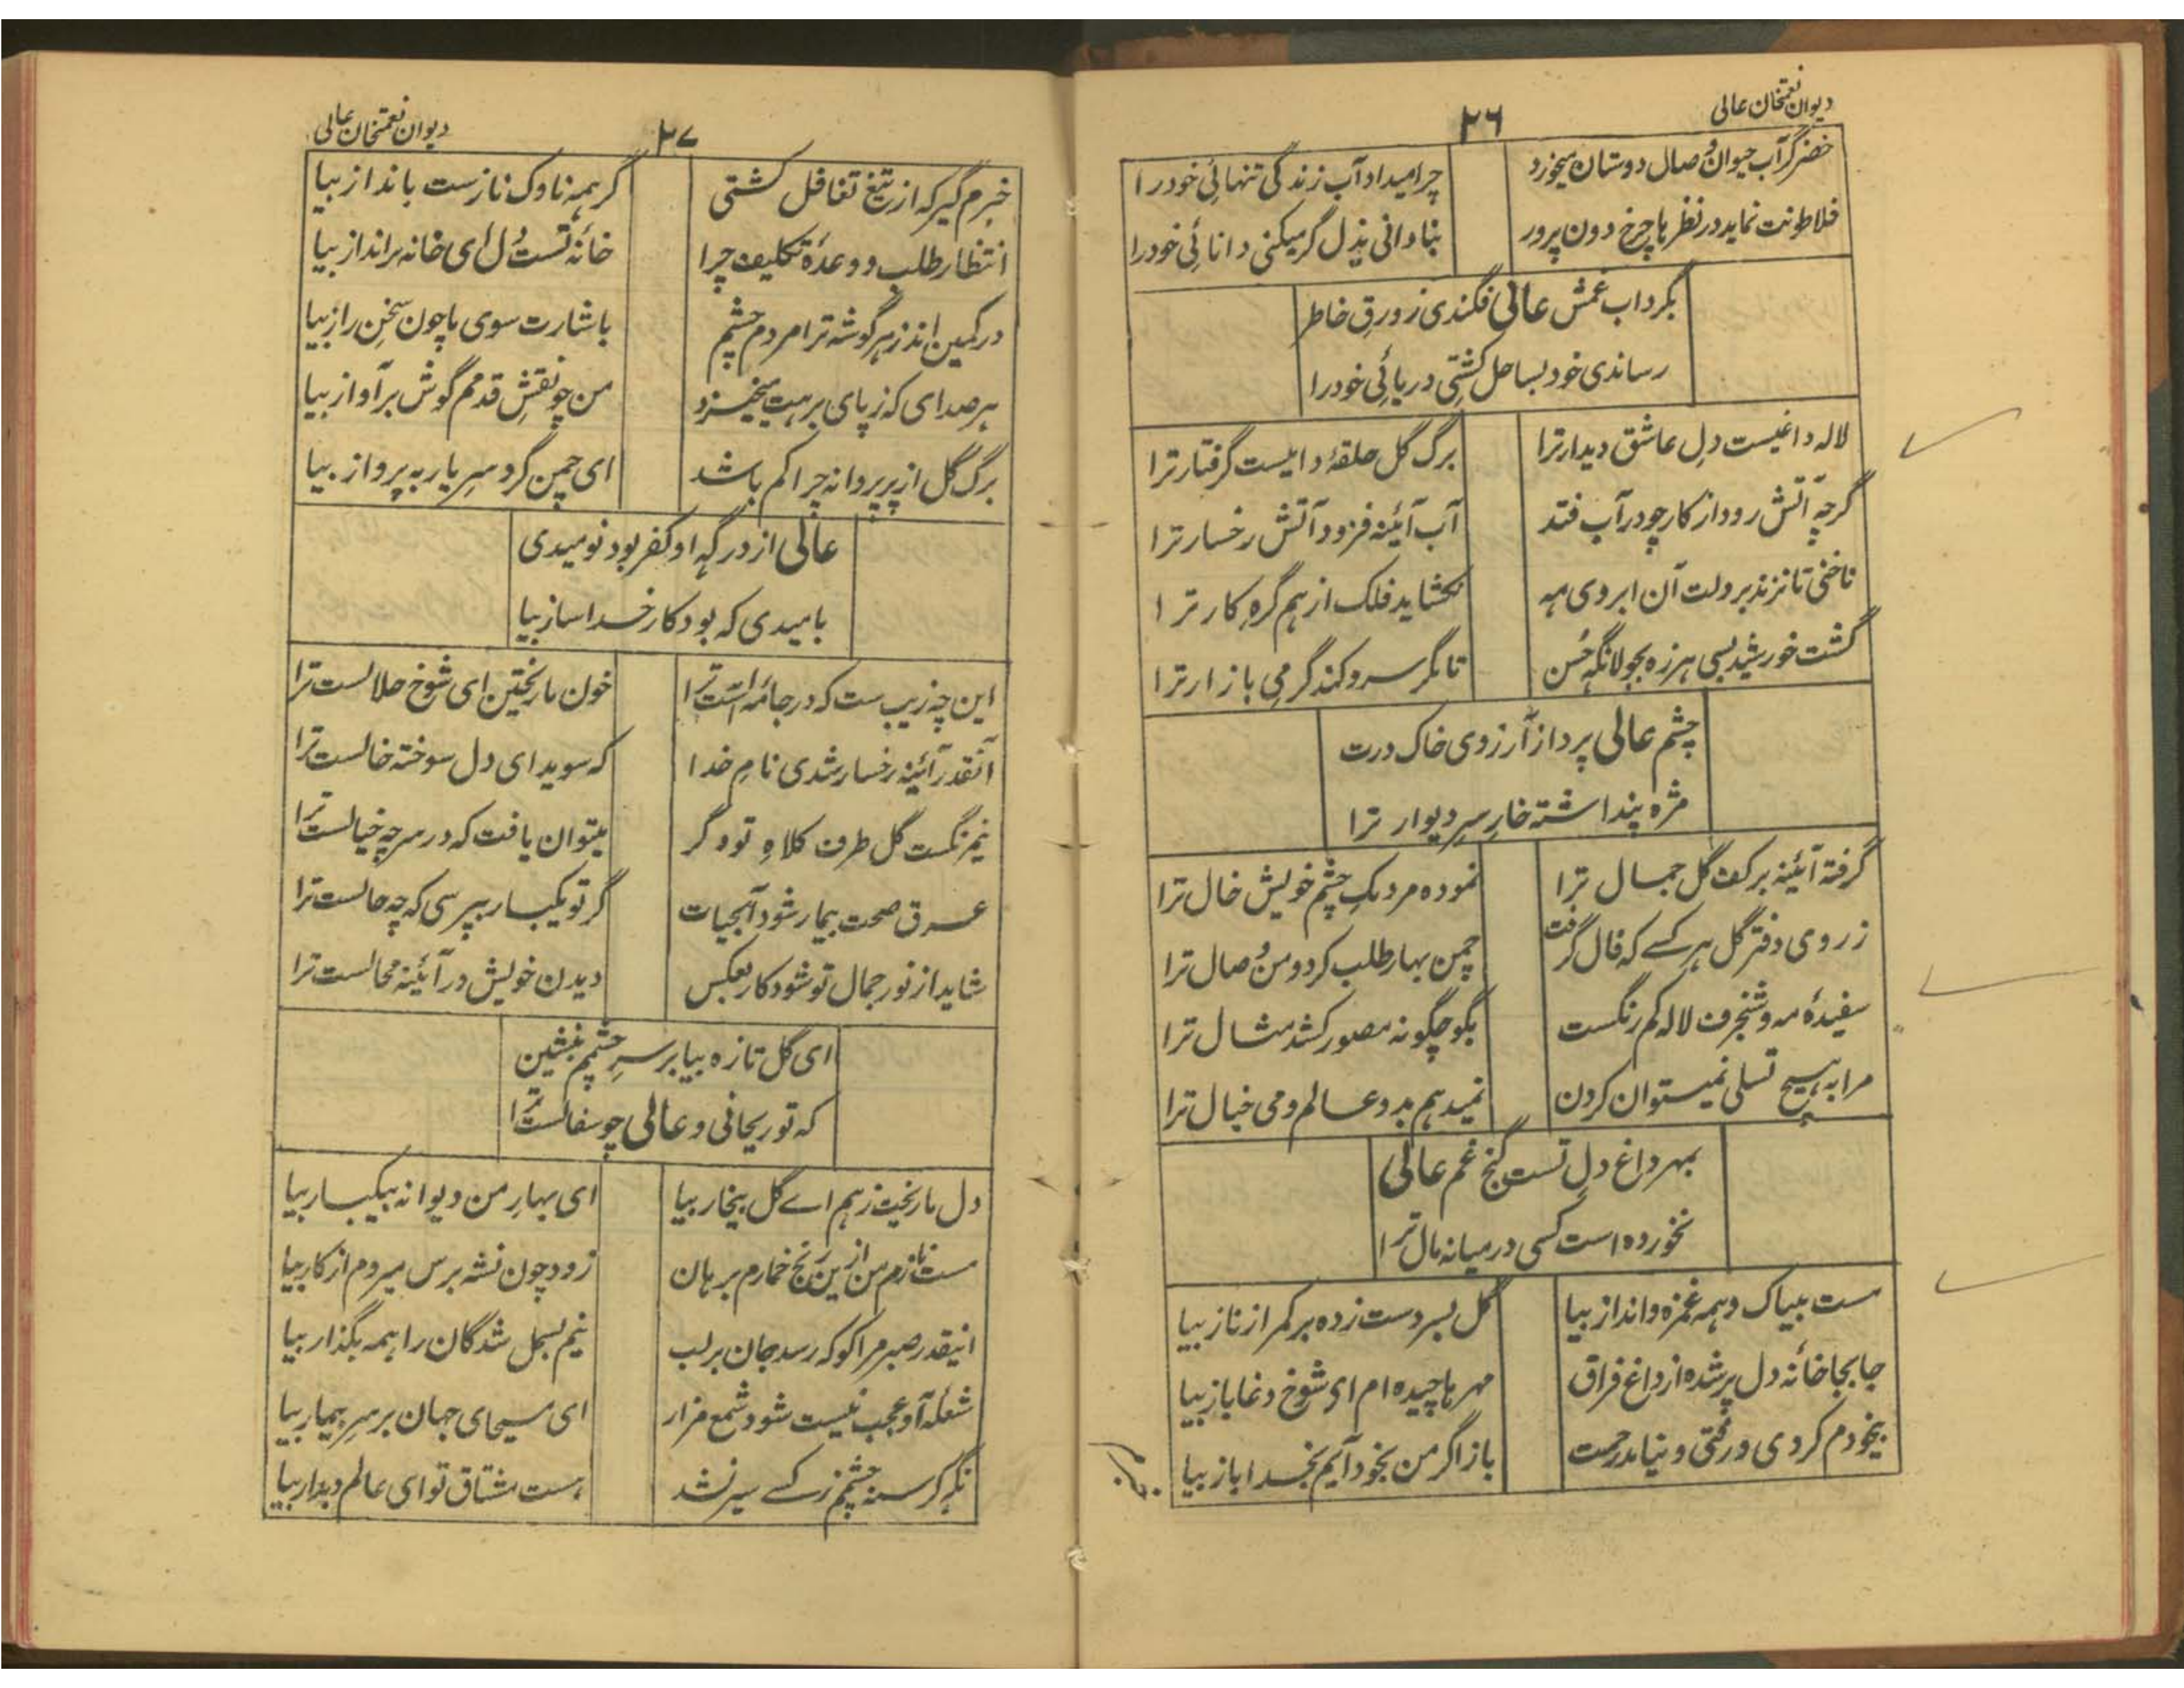 دیوان نعمتخان عالی
۲۶
خضر گر آب حیوان وصال دوستان میخورد
چرا میداد آب زندگی تنهائی خود را
فلاطونت نماید در نظر ها چرخ دون پرور
بنادانی بدل گر میکنی دانائی خود را
بگرداب غمش عالی فگندی زورق خاطر
رساندی خود بساحل کشتی دریائی خود را
لاله داغیست دل عاشق دیدار ترا
برگ گل حلقۂ دامیست گرفتار ترا
گرچه آتش رود از کار چو در آب فتد
آب آئینه فزود آتش رخسار ترا
ناخنی تا نزند بر دلت آن ابروی مه
نکشاید فلک از هم گره کار ترا
گشت خورشید بسی هرزه بجولانگه حسن
تا مگر سرد کند گرمی بازار ترا
چشم عالی پرد از آرزوی خاک درت
مژه پنداشته خار سر دیوار ترا
گرفته آئینه بر کف گل جمال ترا
نموده مردمک چشم خویش خال ترا
ز روی دفتر گل هر کسے که فال گرفت
چمن بهار طلب کرد و من وصال ترا
سفیدۂ مه و شنجرف لاله کم رنگست
بگو چگونه مصور کشد مثال ترا
مرا به هیچ تسلی نمیتوان کردن
نمیدهم بدو عالم دمی خیال ترا
بمهر داغ دل تست گنج غم عالی
نخورده است کسی درمیانه مال ترا
مست بیباک و همه غمزه و انداز بیا
گل بسر دست زده بر کمر از ناز بیا
جابجا خانۂ دل پر شده از داغ فراق
مهر ها چیده ام ای شوخ دغا باز بیا
بیخودم کردی و رفتی و نیامد رحمت
باز اگر من بخود آیم بخدا باز بیا
دیوان نعمتخان عالی
۲۷
خبرم گیر که از تیغ تغافل کشتی
گر همه ناوک نازست بانداز بیا
انتظار طلب و وعدۂ تکلیف چرا
خانۂ تست دل ای خانه برانداز بیا
در کمین اند ز هر گوشه ترا مردم چشم
باشارت سوی ما چون سخن راز بیا
هر صدای که ز پای برهت میخیزد
من چو نقش قدمم گوش بر آواز بیا
برگ گل از پر پروانه چرا کم باشد
ای چمن گرد سر یار به پرواز بیا
عالی از درگه او کفر بود نومیدی
بامیدی که بود کار خدا ساز بیا
این چه زیب ست که در جامۂ است ترا
خون ما ریختن ای شوخ حلالست ترا
آنقدر آئینه رخسار شدی نام خدا
که سویدای دل سوخته خالست ترا
نیم رنگست گل طرف کلاه تو و گر
میتوان یافت که در سر چه خیالست ترا
عرق صحت بیمار شود آبحیات
گر تو یکبار بپرسی که چه حالست ترا
شاید از نور جمال تو شود کار بعکس
دیدن خویش در آئینه محالست ترا
ای گل تازه بیا بر سر چشمم بنشین
که تو ریحانی و عالی چو سفالست ترا
دل ما ریخت ز هم اے گل بیخار بیا
ای بهار من دیوانه بیکبار بیا
مست نازم من ازین رنج خمارم برهان
زود چون نشه برس میروم از کار بیا
اینقدر صبر مرا کو که رسد جان بر لب
نیم بسمل شدگان را همه بگذار بیا
شعلۂ آه عجب نیست شود شمع مزار
ای مسیحای جهان بر سر بیمار بیا
نگه گرسنه چشم ز کسے سیر نشد
هست مشتاق تو ای عالم دیدار بیا